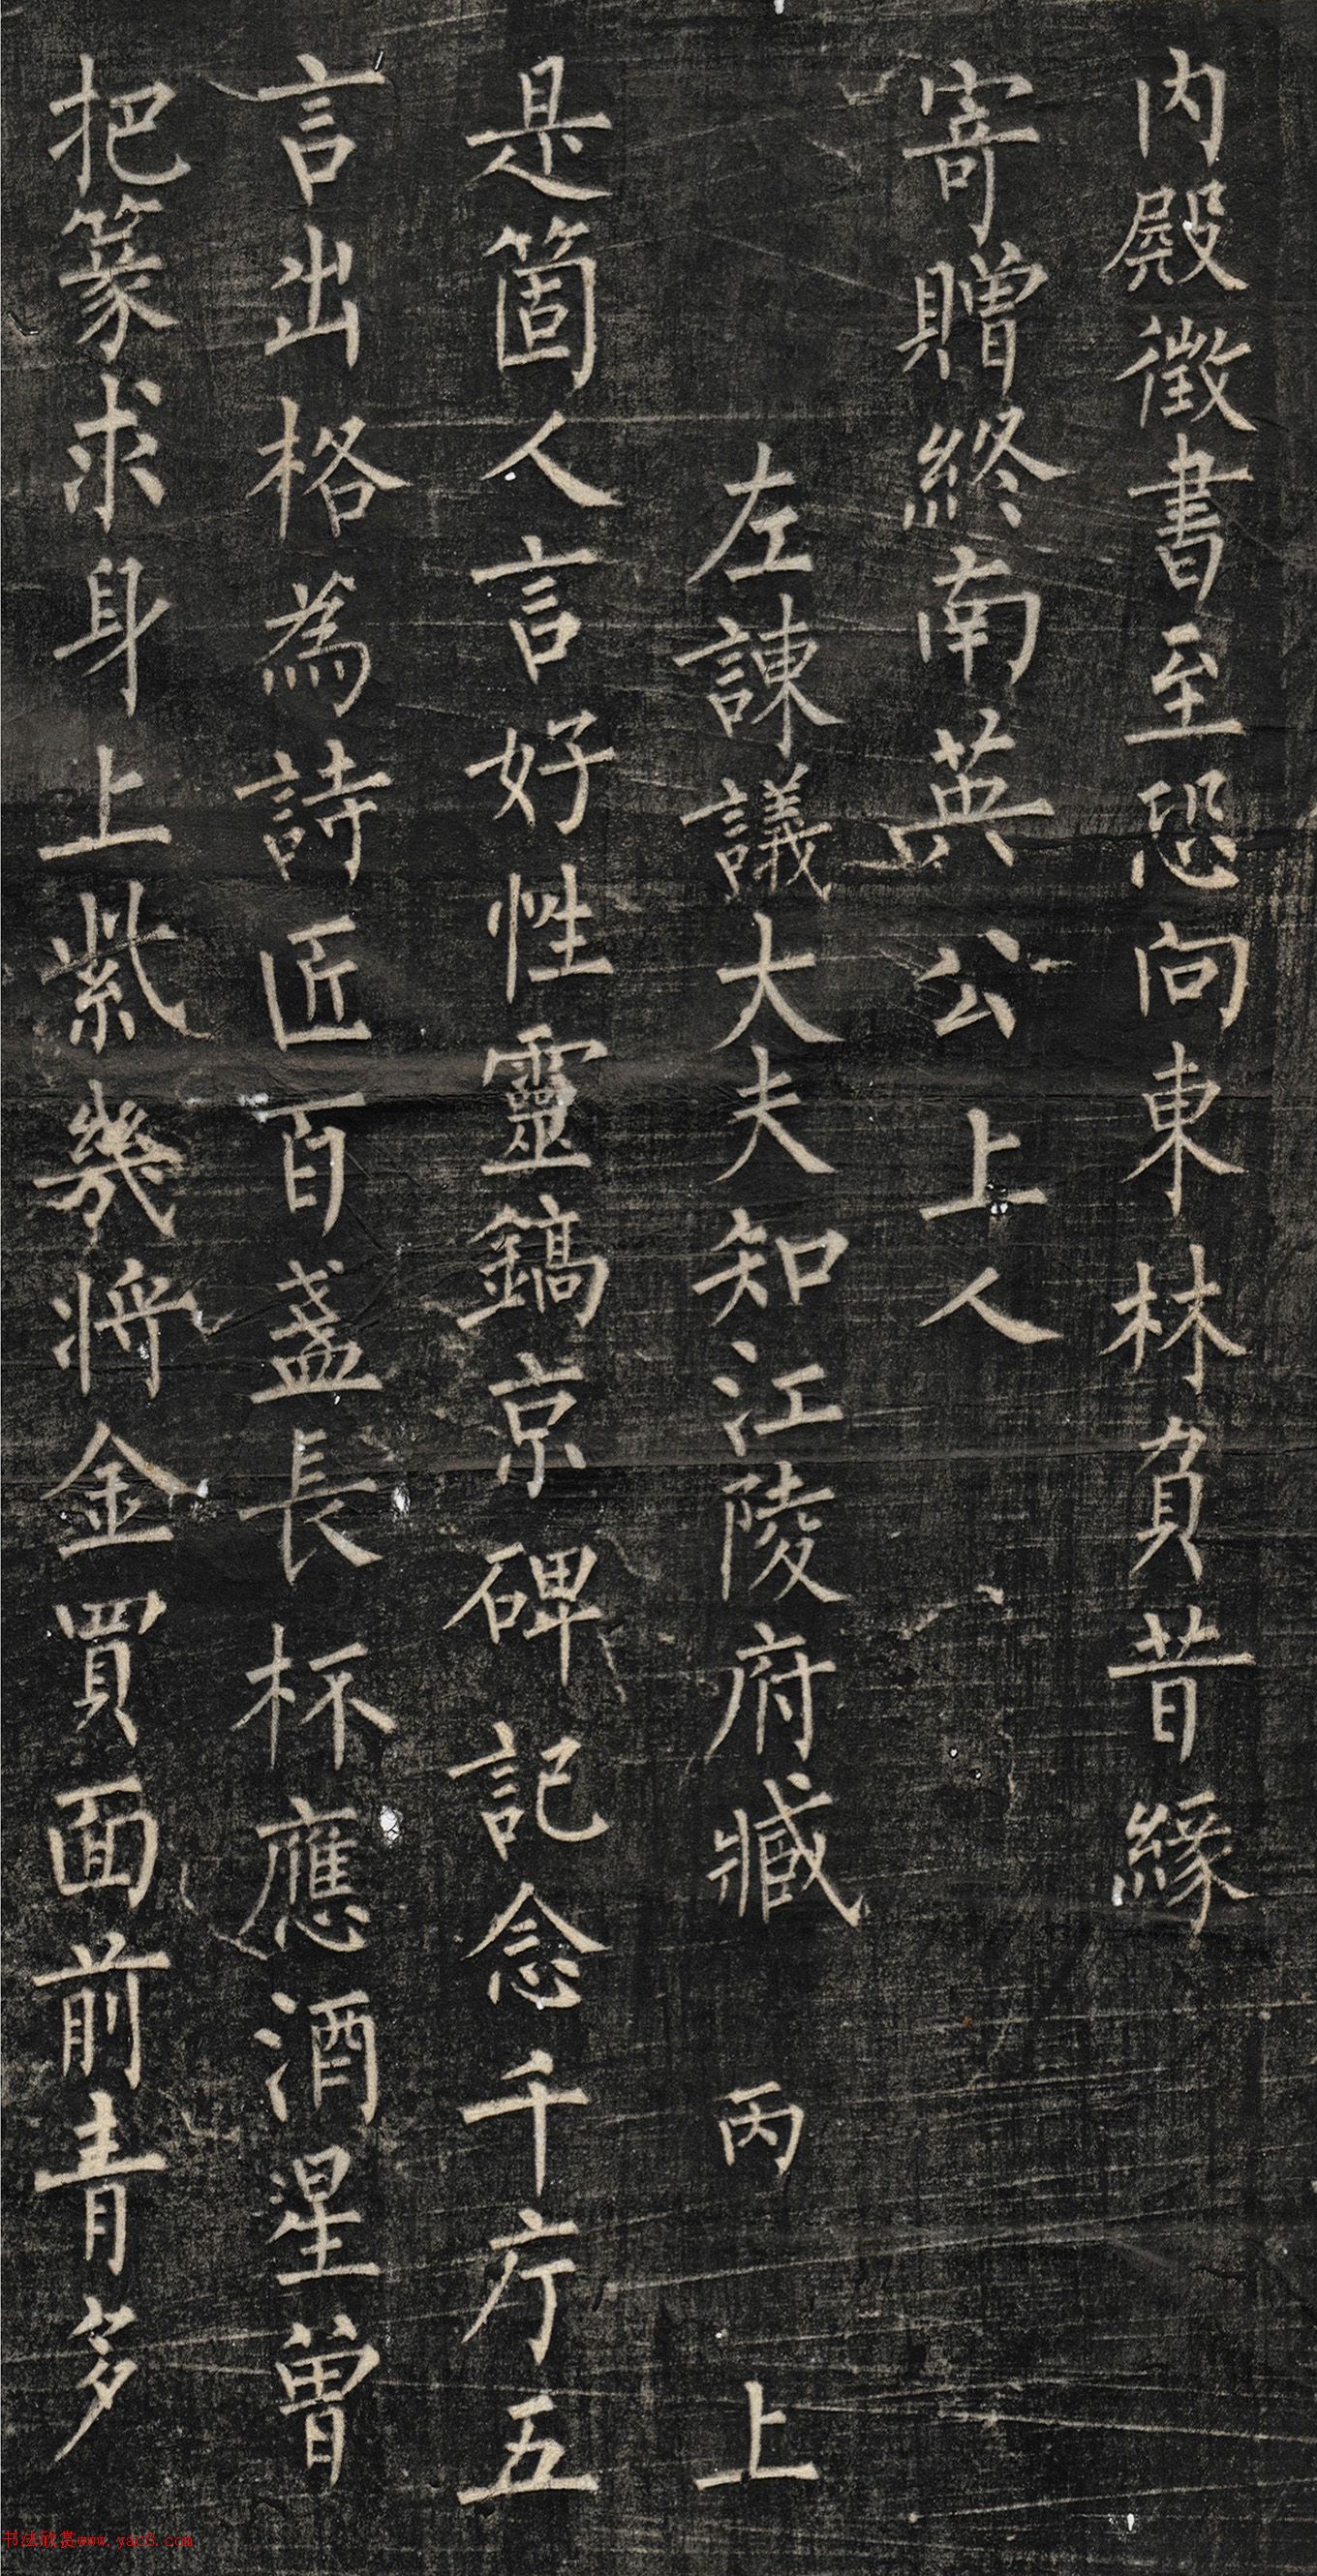 內殿徵書至恐向東林負昔緣
寄贈終南英公上人
左諫議大夫知江陵府臧丙上
是箇人言好性靈鎬京碑記念千疗五
言出格為詩匠百盞長杯應酒星曽
把篆求身上紫幾將金買面前青多
书法欣赏www.yac8.com